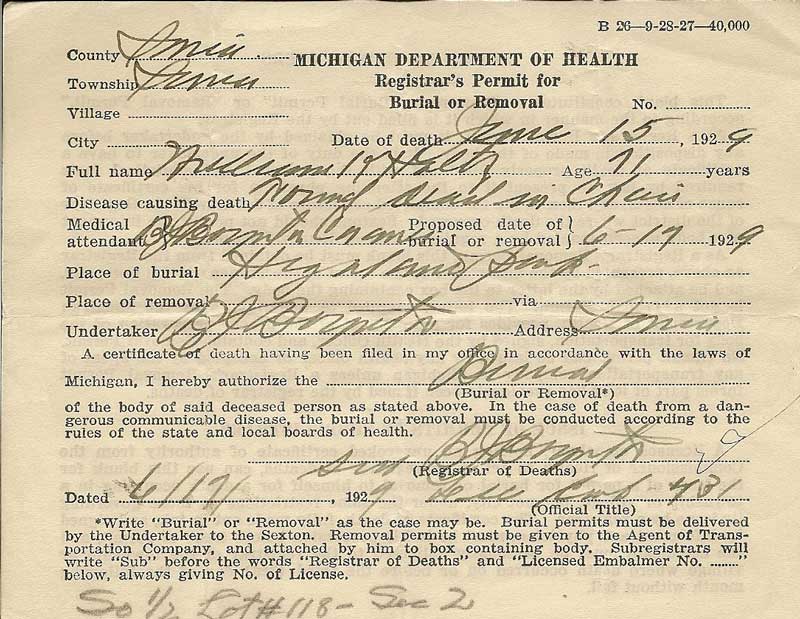 B 26—9-28-27—40,000
County Ionia
MICHIGAN DEPARTMENT OF HEALTH
Township Ionia
Registrar's Permit for
Burial or Removal No.
Village
City Date of death June 15, 1929
Full name William H Age 71 years
Disease causing death Found dead in Chair
Medical attendant B J Boynton Proposed date of burial or removal 6-17 1929
Place of burial Highland Park
Place of removal via
Undertaker B J Boynton Address Ionia
A certificate of death having been filed in my office in accordance with the laws of
Michigan, I hereby authorize the Burial
(Burial or Removal*)
of the body of said deceased person as stated above. In the case of death from a dan-
gerous communicable disease, the burial or removal must be conducted according to the
rules of the state and local boards of health.
Sub B J Boynton
(Registrar of Deaths)
Dated 6/17/ 1929 431
(Official Title)
*Write "Burial" or "Removal" as the case may be. Burial permits must be delivered
by the Undertaker to the Sexton. Removal permits must be given to the Agent of Trans-
portation Company, and attached by him to box containing body. Subregistrars will
write "Sub" before the words "Registrar of Deaths" and "Licensed Embalmer No. ........"
below, always giving No. of License.
So 1/2 Lot # 118 - Sec 2